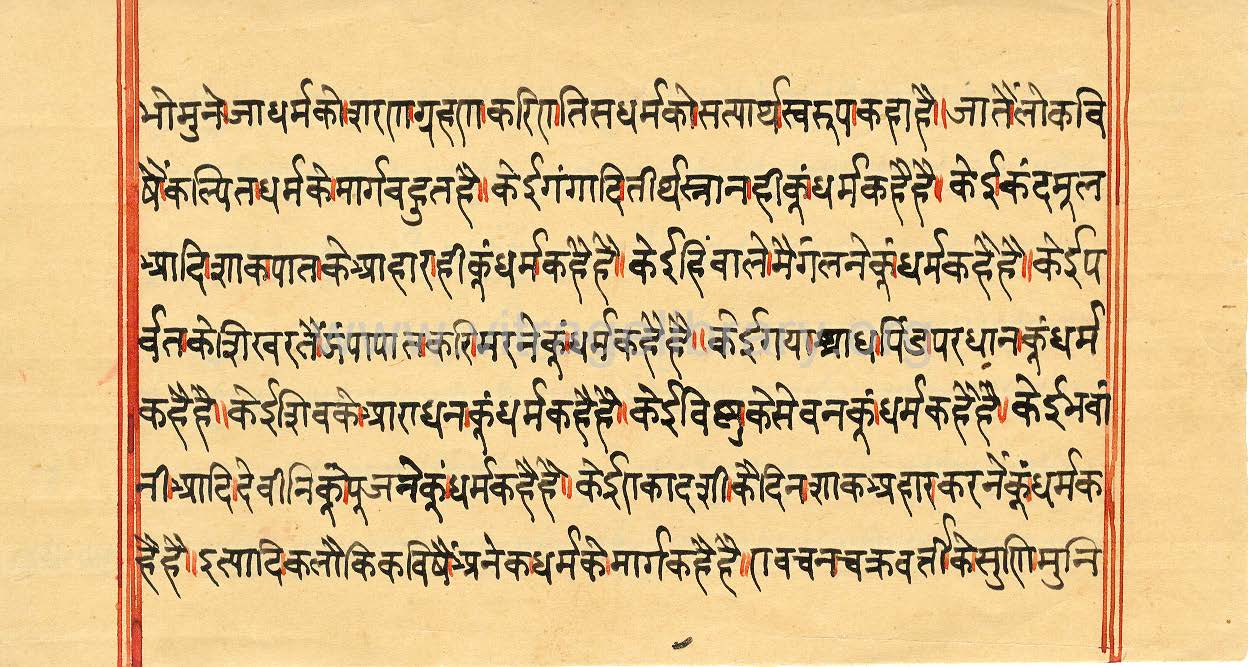 भो मुने। जा धर्म को। शरण। गृहण। करिए। तिस धर्म को। सत्यार्थ। स्वरूप। कहा है॥ जातैं। लोक वि
षैं। कल्पित। धर्म के। मार्ग। बहुत है॥ केई गंगादि। तीर्थ। स्नान। ही कूं। धर्म। कहै है॥ केई। कंद मूल
आदि। शाक। पात। के आहार। ही कूं। धर्म। कहै है॥ केई हिंवाले। मै। गलने। कूं। धर्म। कहै है॥ केई प
र्वत। के शिखर तैं। झंपापात। करि। मरने। कूं। धर्म। कहै है॥ केई गया। श्राध। पिंड। परधान। कूं धर्म
कहै है॥ केई शिव। के। आराधन। कूं। धर्म। कहै है॥ केई विष्णु। के सेवन। कूं। धर्म। कहै है॥ केई भवां
नी। आदि। देवीनि। कूं। पूजने। कूं। धर्म। कहै है॥ केई। एकादशी। कै दिन। शाक। अहार। करनैं। कूं। धर्म क
है है॥ इत्यादिक। लौकिक विषैं। अनेक। धर्म। के। मार्ग। कहै है॥ ए वचन। चक्रवर्ती। के सुणि। मुनि
www.vitragelibrary.org